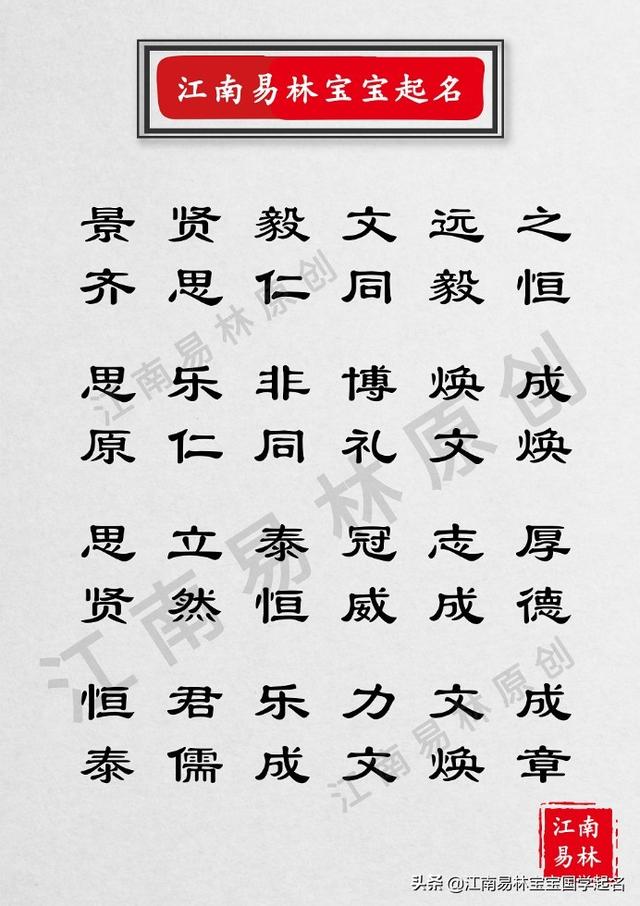 江南易林宝宝起名
景贤毅文远之
齐思仁同毅恒
思乐非博焕成
原仁同礼文焕
思立泰冠志厚
贤然恒威成德
恒君乐力文成
泰儒成文焕章
江南易林原创
江南易林原创
江南易林原创
江南
易林
头条 @江南易林宝宝国学起名